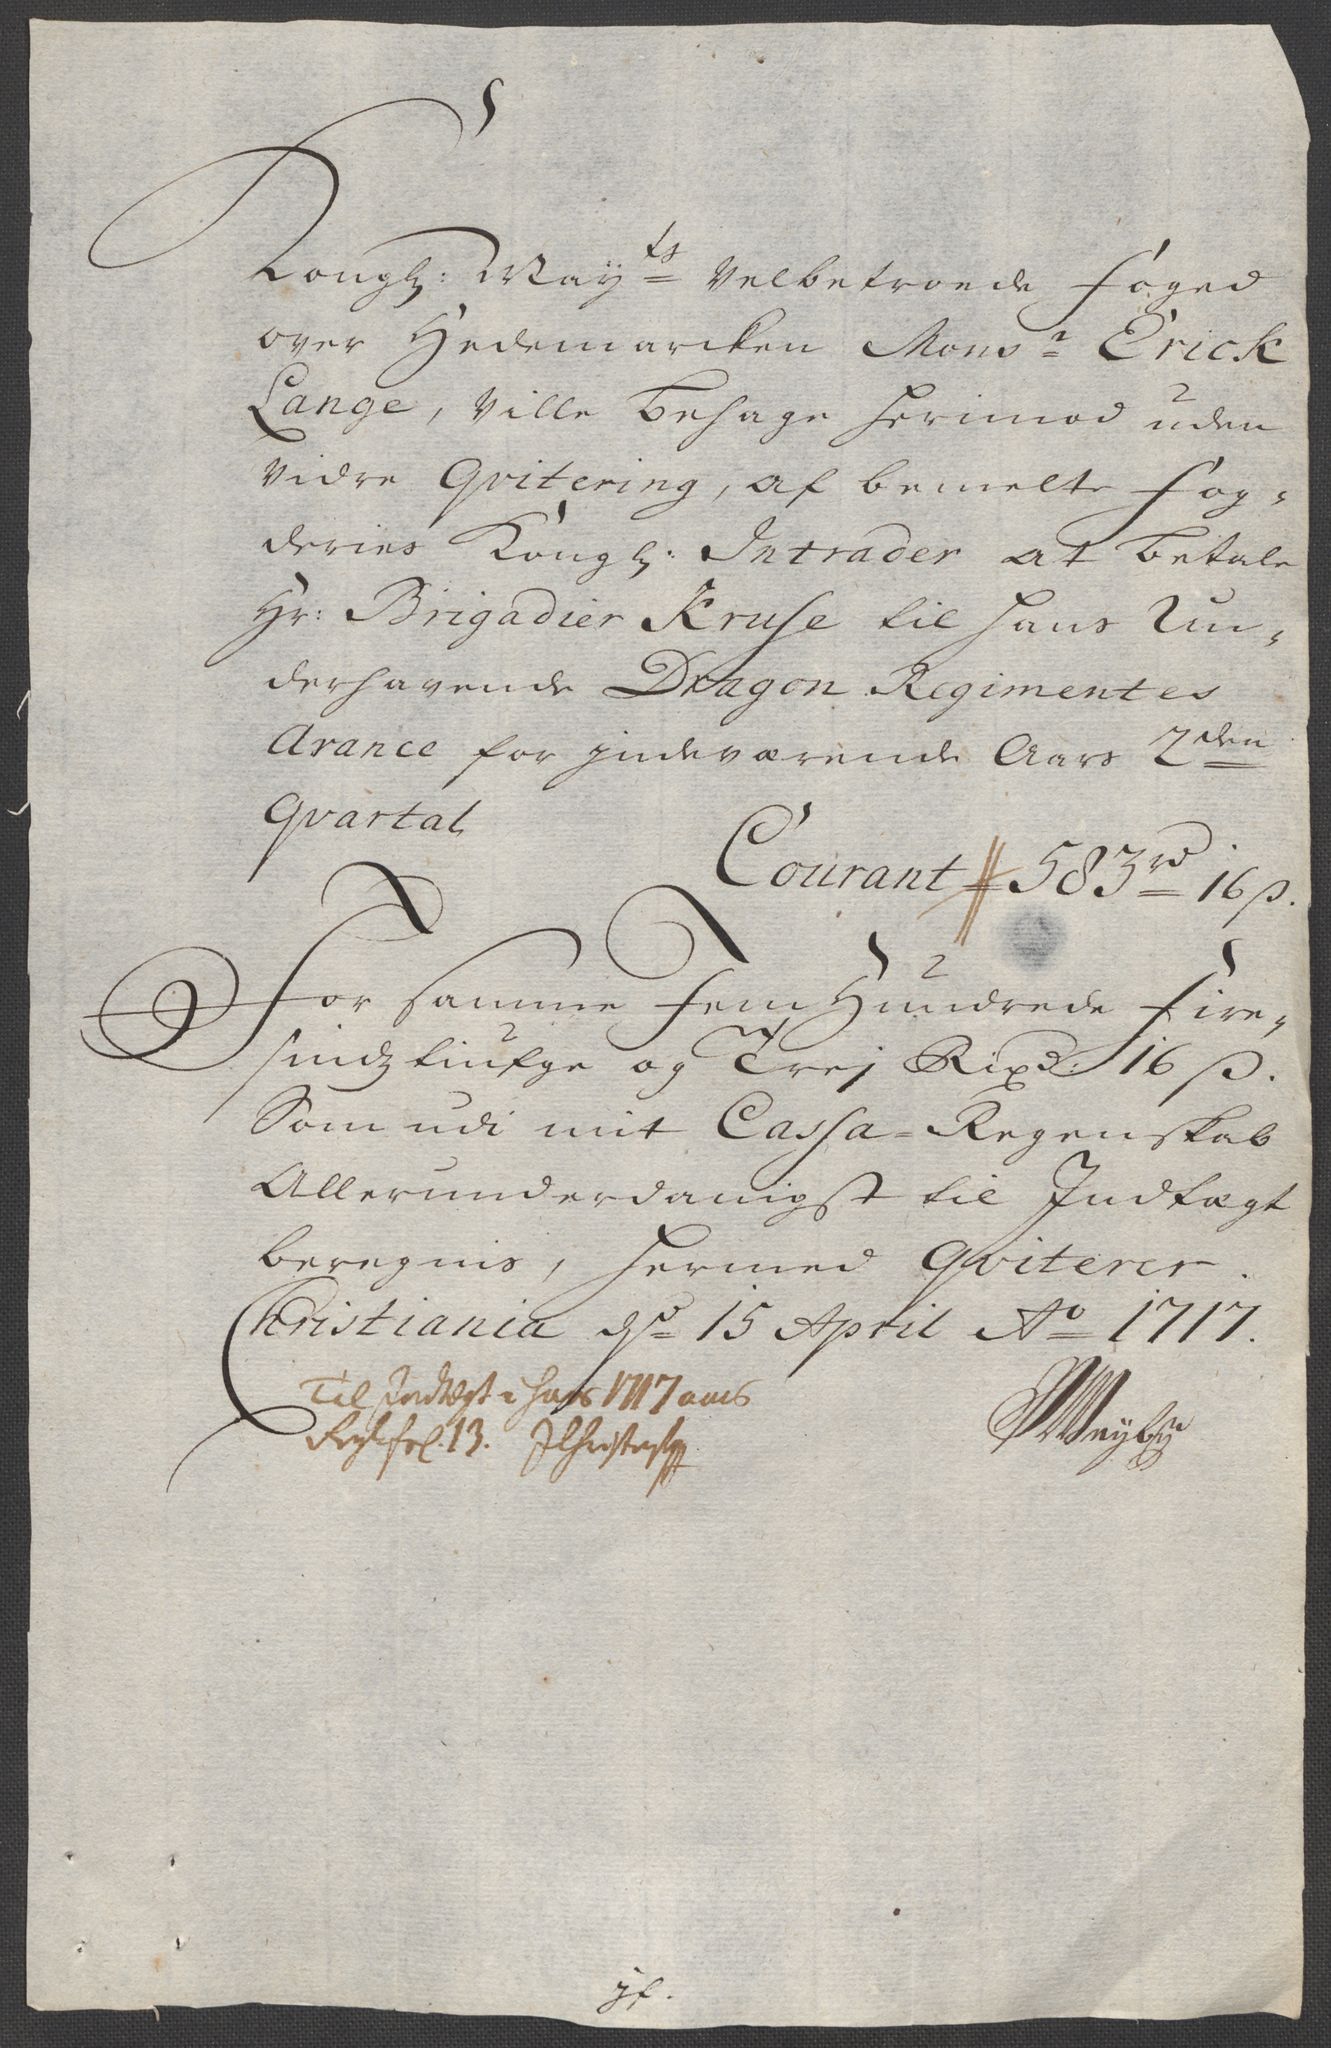 Kongl: May.ts Velbetroede Foged
over Hedemarcken Mons.r Erick
Lange, Ville behage herimod uden
vidre Qvitering, af bemelte Fog-
deries Kongl: Intrader at betale
Hr: Brigadier Kruse til hans Un-
derhavende Dragon Regimentes
Avance for jndeværende Aars 2den
Qvartal
Courant 583 rd 16 ß.
For samme Fem Hundrede Fire-
sindztiufge og Trej Rixd: 16 ß.
Som udi mit Cassa-Regenskab
Allerunderdanigst til Indtægt
beregnis, hermed Qviterer.
Christiania d. 15 April Ao 1717.
Til Indtægt i hans 1717 aars
fol. 13.